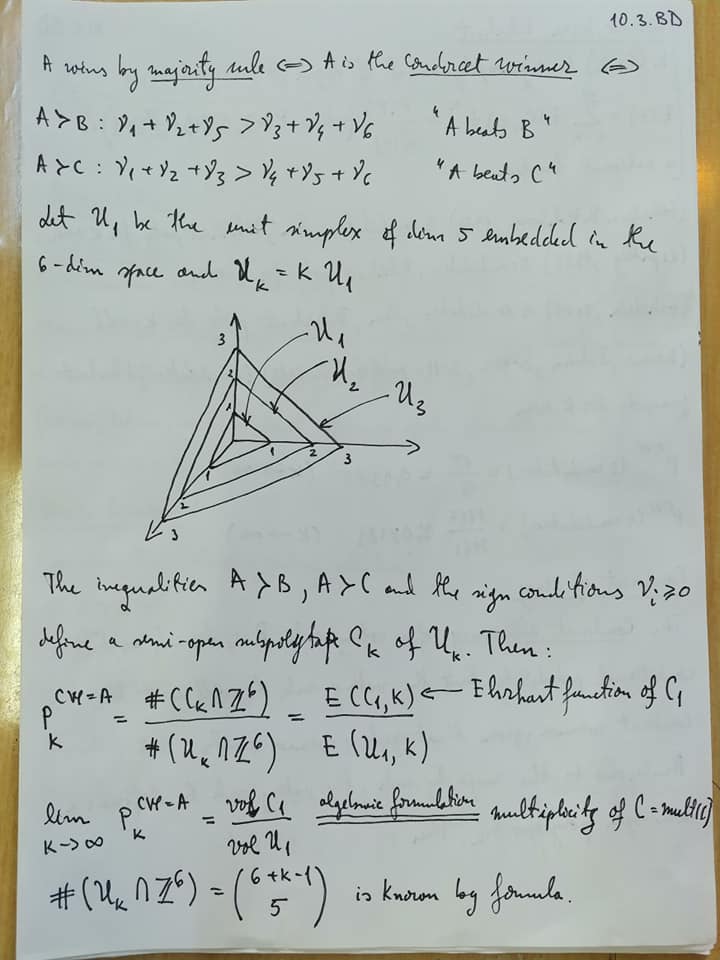 10.3.BD
A wins by majority rule <=> A is the Condorcet winner <=>
A≻B : ν₁ + ν₂ + ν₅ > ν₃ + ν₄ + ν₆ "A beats B"
A≻C : ν₁ + ν₂ + ν₃ > ν₄ + ν₅ + ν₆ "A beats C"
Let U₁ be the unit simplex of dim 5 embedded in the
6-dim space and U_k = k U₁
3
2
1
U₁
U₂
U₃
1 2 3
1
2
3
The inequalities A≻B, A≻C and the sign conditions ν_i ≥ 0
define a semi-open subpolytop C_k of U_k. Then:
P_k^{CW=A} = #(C_k ∩ ℤ⁶) / #(U_k ∩ ℤ⁶) = E(C₁,k) / E(U₁,k) ← Ehrhart function of C₁
lim_{k→∞} P_k^{CW=A} = vol C₁ / vol U₁ algebraic formulation multiplicity of C = mult(C)
#(U_k ∩ ℤ⁶) = (6+k-1 5) is known by formula.